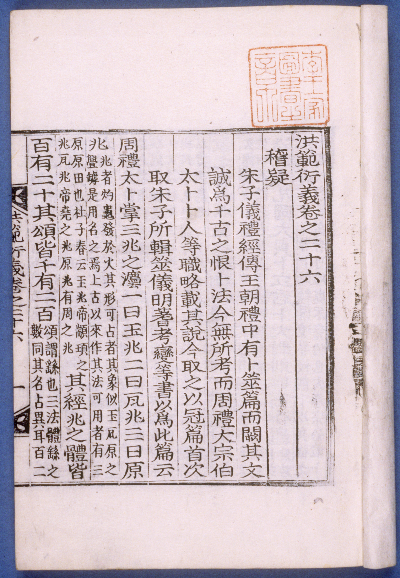 李王家圖書之章
洪範衍義卷之二十六
稽疑
朱子儀禮經傳王朝禮中有卜筮篇而闕其文
誠爲千古之恨卜法今無所考而周禮大宗伯
太卜卜人等職略載其說今取之以冠篇首次
取朱子所輯筮儀明蓍考變等書以爲此篇云
周禮太卜掌三兆之灋一曰玉兆二曰瓦兆三曰原
兆兆者灼龜發於火其形可占者其象似玉瓦原之
舋罅是用名之焉上古以來作其法可用者有三
原原田也杜子春云玉兆帝顓頊之
兆瓦兆帝堯之兆原兆有周之兆
其經兆之體皆
百有二十其頌皆千有二百
頌謂繇也三法體繇之
數同其名占異耳百二
洪範衍義卷之二十六 一